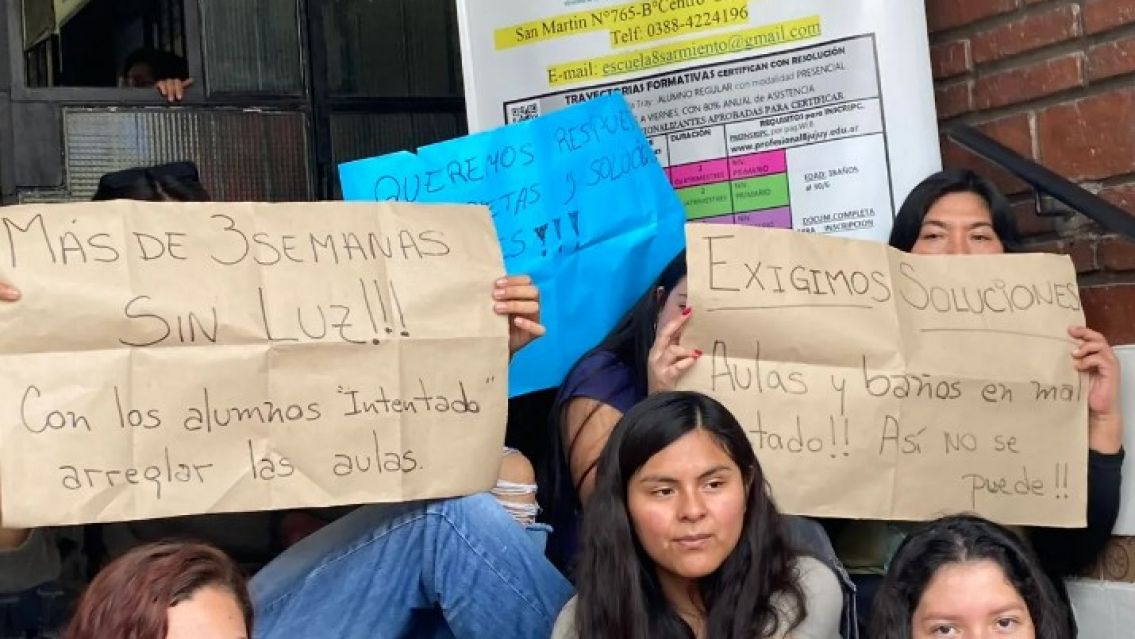 San Martin N°765-B°Centro
Telf: 0388-4224196
E-mail: escuela8sarmiento@gmail.com
TRAYECTORIAS FORMATIVAS CERTIFICAN CON RESOLUCIÓN
Tray: ALUMNO REGULAR con modalidad PRESENCIAL
A VIERNES, CON 80% ANUAL de ASISTENCIA
APROBADAS PARA CERTIFICAR
DURACIÓN
REQUISITOS para INSCRIPC.
por pag.W
www.profesional8jujuy.edu.ar
2
CUATRIMESTRES
PRIMARIO
EDAD: 18AÑOS
al 90/6
DOCUM.COMPLETA
INSCRIPCION
QUEREMOS RESPUE
ETAS y SOLUCIO
ES!!!
MÁS DE 3 SEMANAS
SIN LUZ!!!
Con los alumnos "Intentado"
arreglar las aulas.
EXIGIMOS SOLUCIONES
Aulas y baños en mal
tado!! Así no se
puede!!